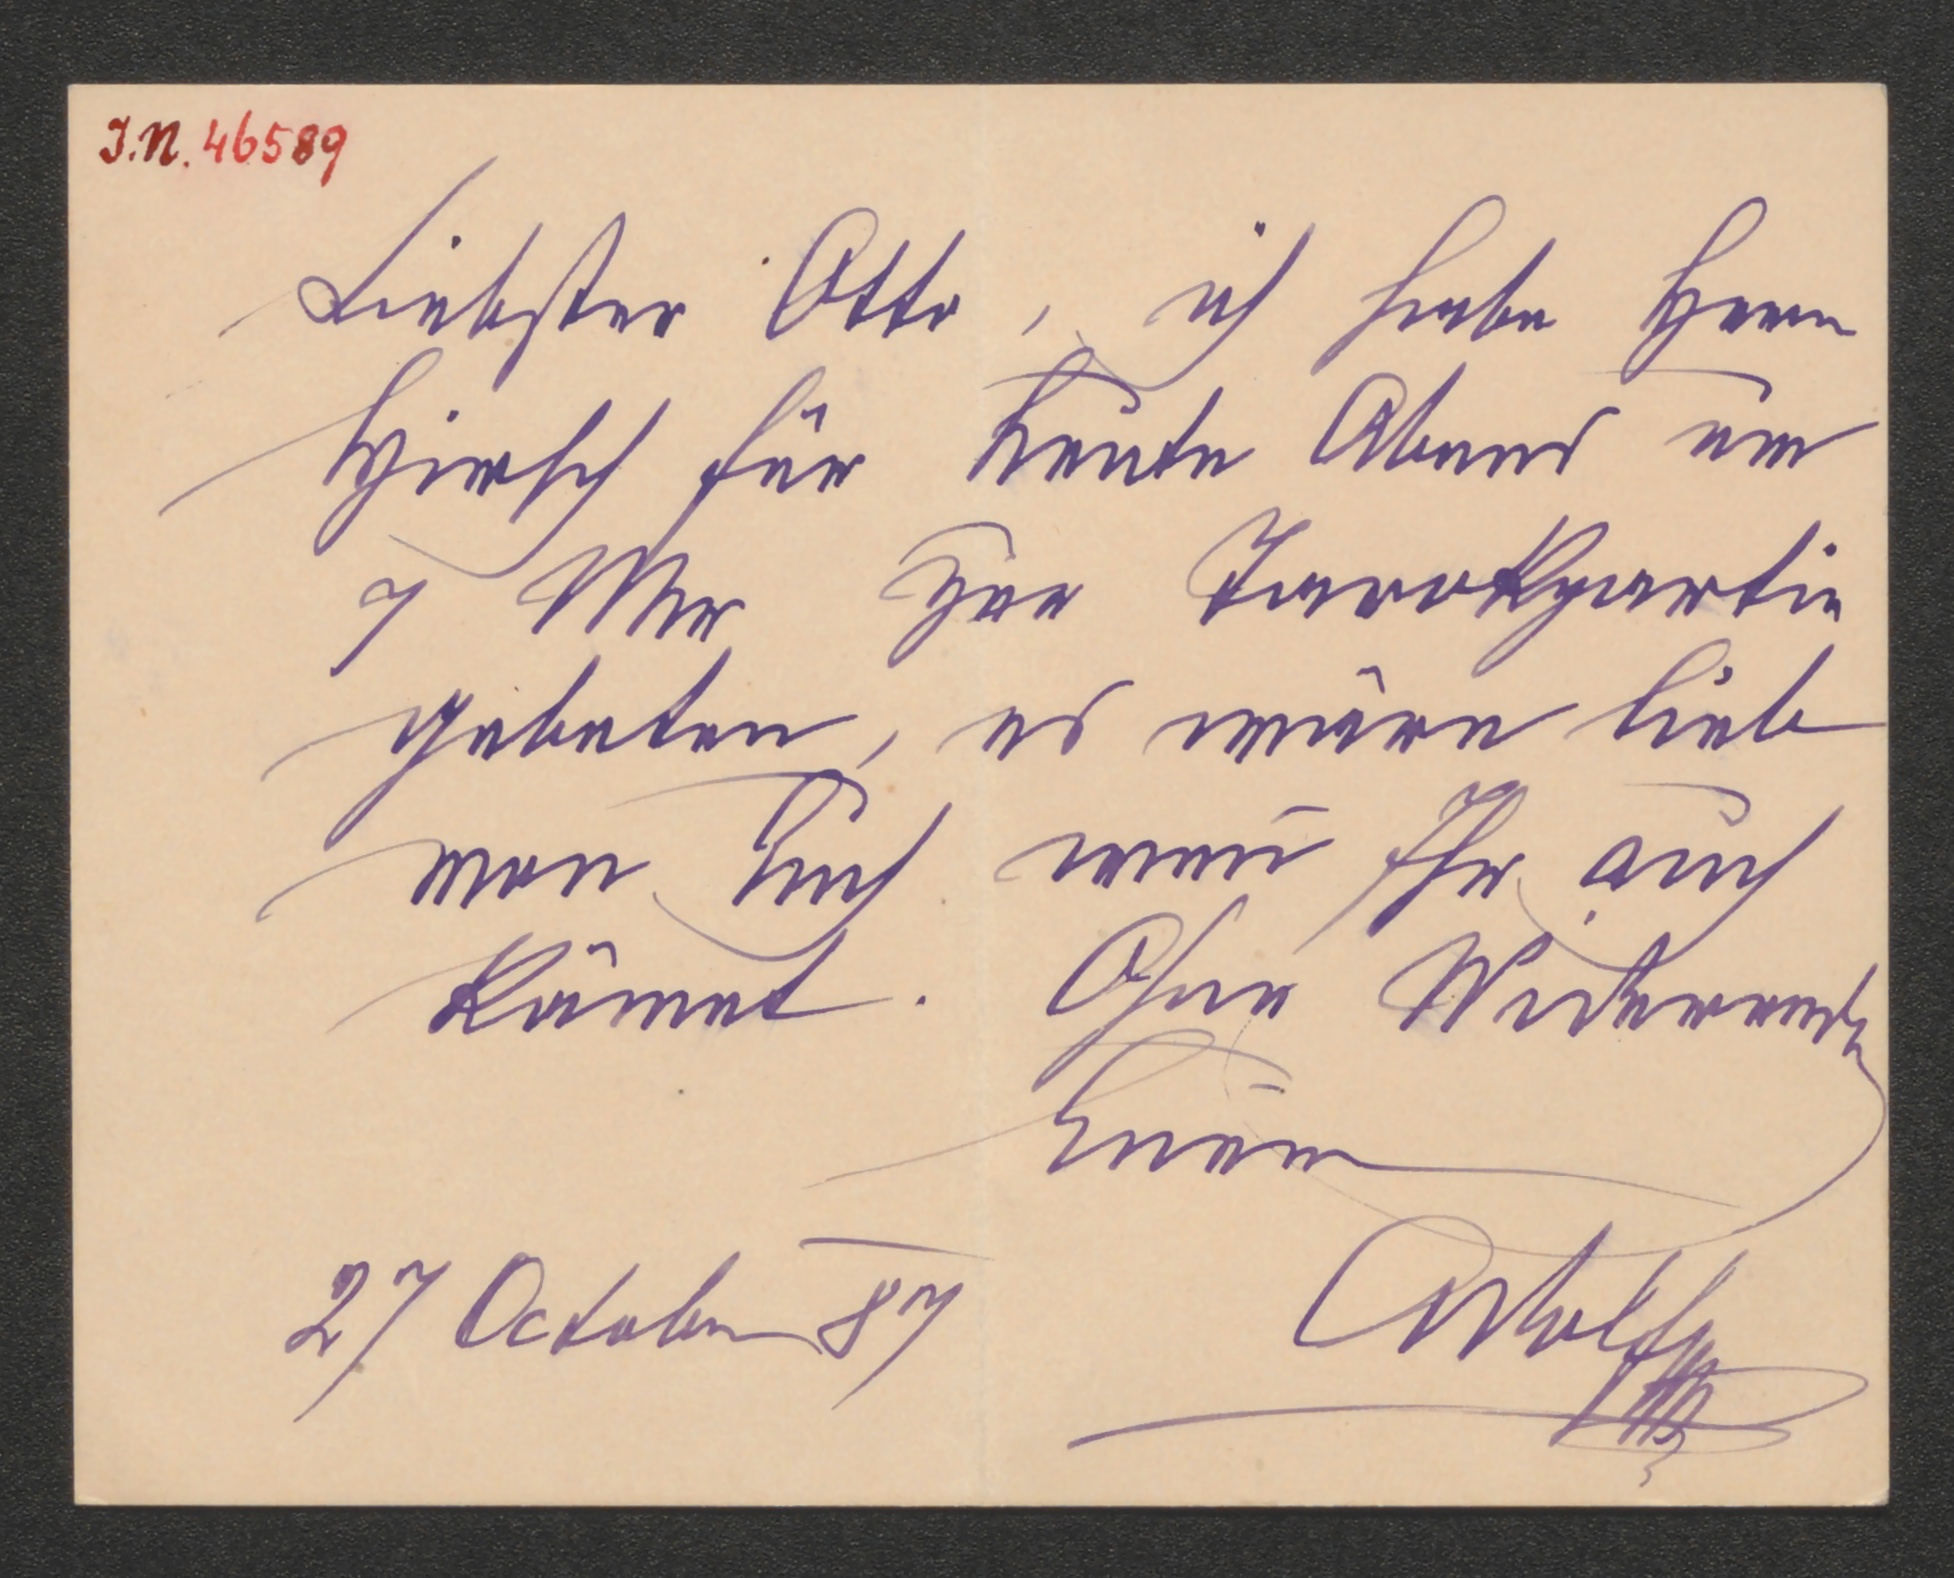 J.N. 46589
Liebster Otto, ich habe Herrn
Hirsch für heute Abend um
7 Uhr zur Tarokpartie
gebeten, es wäre lieb
von Euch wenn Ihr auch
kämet. Ohne Widerrede
Euer
27 October 87
Adolf